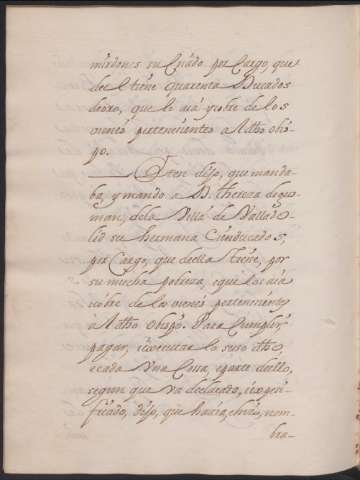 mirdones su Criado por Cargo, que
del tiene quarenta Ducados
deoro, que le aia ycobre de los
vienes pertenecientes a dtho obis-
po.
Yten dijo, que manda-
ba, y mando a D. thereza de guz-
man, dela Villa de Vallado-
lid su hermana Cien ducados,
por Cargo, que della tiene, por
su mucha pobreza, y que los aia
cobre de los vienes pertenecientes
a dtho obispo. Para Cumplir,
pagar, executar lo suso dtho
ecada Una Cossa, eparte dello,
segun que va declarado, especi-
ficado, dijo, que hacia, ehizo, nom-
bra-